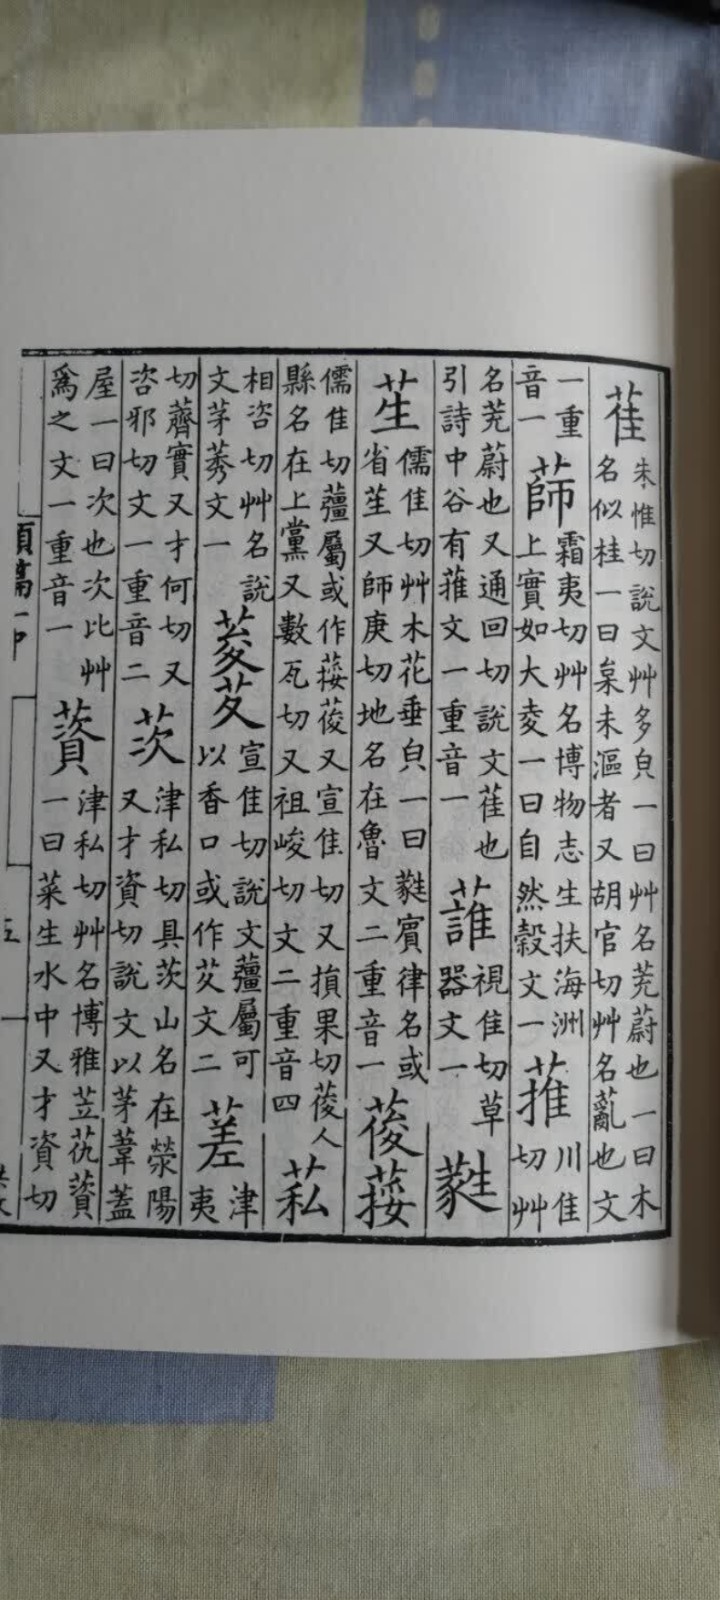 萑
朱惟切說文艸多皃一曰艸名茺蔚也一曰木
名似桂一曰枲未漚者又胡官切艸名薍也文
一重
音一
蒒
霜夷切艸名博物志生扶海洲
上實如大麥一曰自然穀文一
蓷
川隹
切艸
名茺蔚也又通回切說文萑也
引詩中谷有蓷文一重音一
視隹切草
器文一
蕤
苼
儒隹切艸木花垂皃一曰蕤賓律名或
省苼又師庚切地名在魯文二重音一
葰
儒隹切薑屬或作葰又宣隹切又損果切葰人
縣名在上黨又數瓦切又祖峻切文二重音四
䓲
相咨切艸名說
文茅莠文一
荾
宣隹切說文薑屬可
以香口或作文二
蒫
津
夷
切薺實又才何切又
咨邪切文一重音二
茨
津私切具茨山名在滎陽
又才資切說文以茅葦蓋
屋一曰次也次比艸
爲之文一重音一
薋
津私切艸名博雅苙芤薋
一曰菜生水中又才資切
類篇一中
五